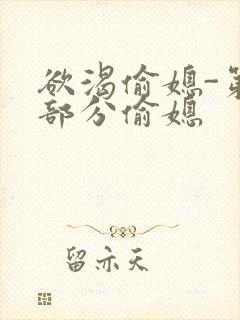 欲渴偷媳-第
部分偷媳
留亦天